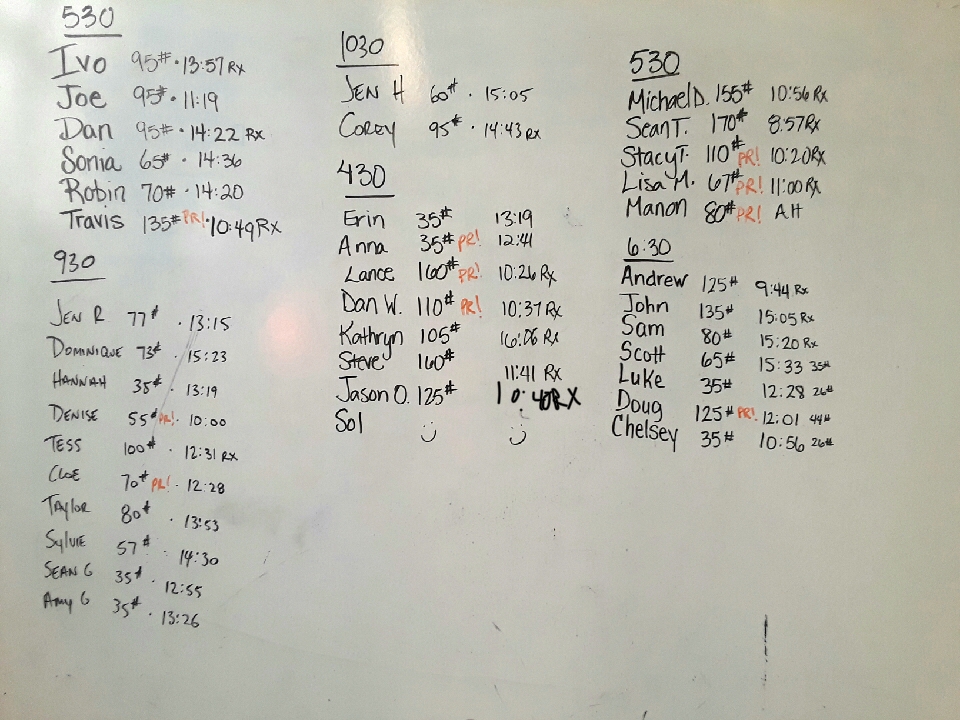 530
Ivo 95# · 13:57 Rx
Joe 95# · 11:19
Dan 95# · 14:22 Rx
Sonia 65# · 14:36
Robin 70# · 14:20
Travis 135# PR! · 10:49 Rx
930
JEN R 77# · 13:15
DOMINIQUE 73# · 15:23
HANNAH 35# · 13:19
DENISE 55# PR! · 10:00
TESS 100# · 12:31 RX
CLOE 70# PR! · 12:28
TAYLOR 80# · 13:53
SYLVIE 57# · 14:30
SEAN G 35# · 12:55
Amy G 35# · 13:26
1030
JEN H 60# · 15:05
COREY 95# · 14:43 RX
430
Erin 35# 13:19
Anna 35# PR! 12:41
Lance 160# PR! 10:26 Rx
Dan W. 110# PR! 10:37 Rx
Kathryn 105# 16:06 Rx
Steve 160# 11:41 Rx
Jason O. 125# 10:40 RX
Sol ⌣̈ ⌣̈
530
Michael D. 155# 10:56 Rx
Sean T. 170# 8:57 Rx
Stacy T. 110# PR! 10:20 Rx
Lisa M. 67# PR! 11:00 Rx
Manon 80# PR!
6:30
Andrew 125# 9:44 Rx
John 135# 15:05 Rx
Sam 80# 15:20 Rx
Scott 65# 15:33 35#
Luke 35# 12:28 26#
Doug 125# PR! 12:01 44#
Chelsey 35# 10:56 26#